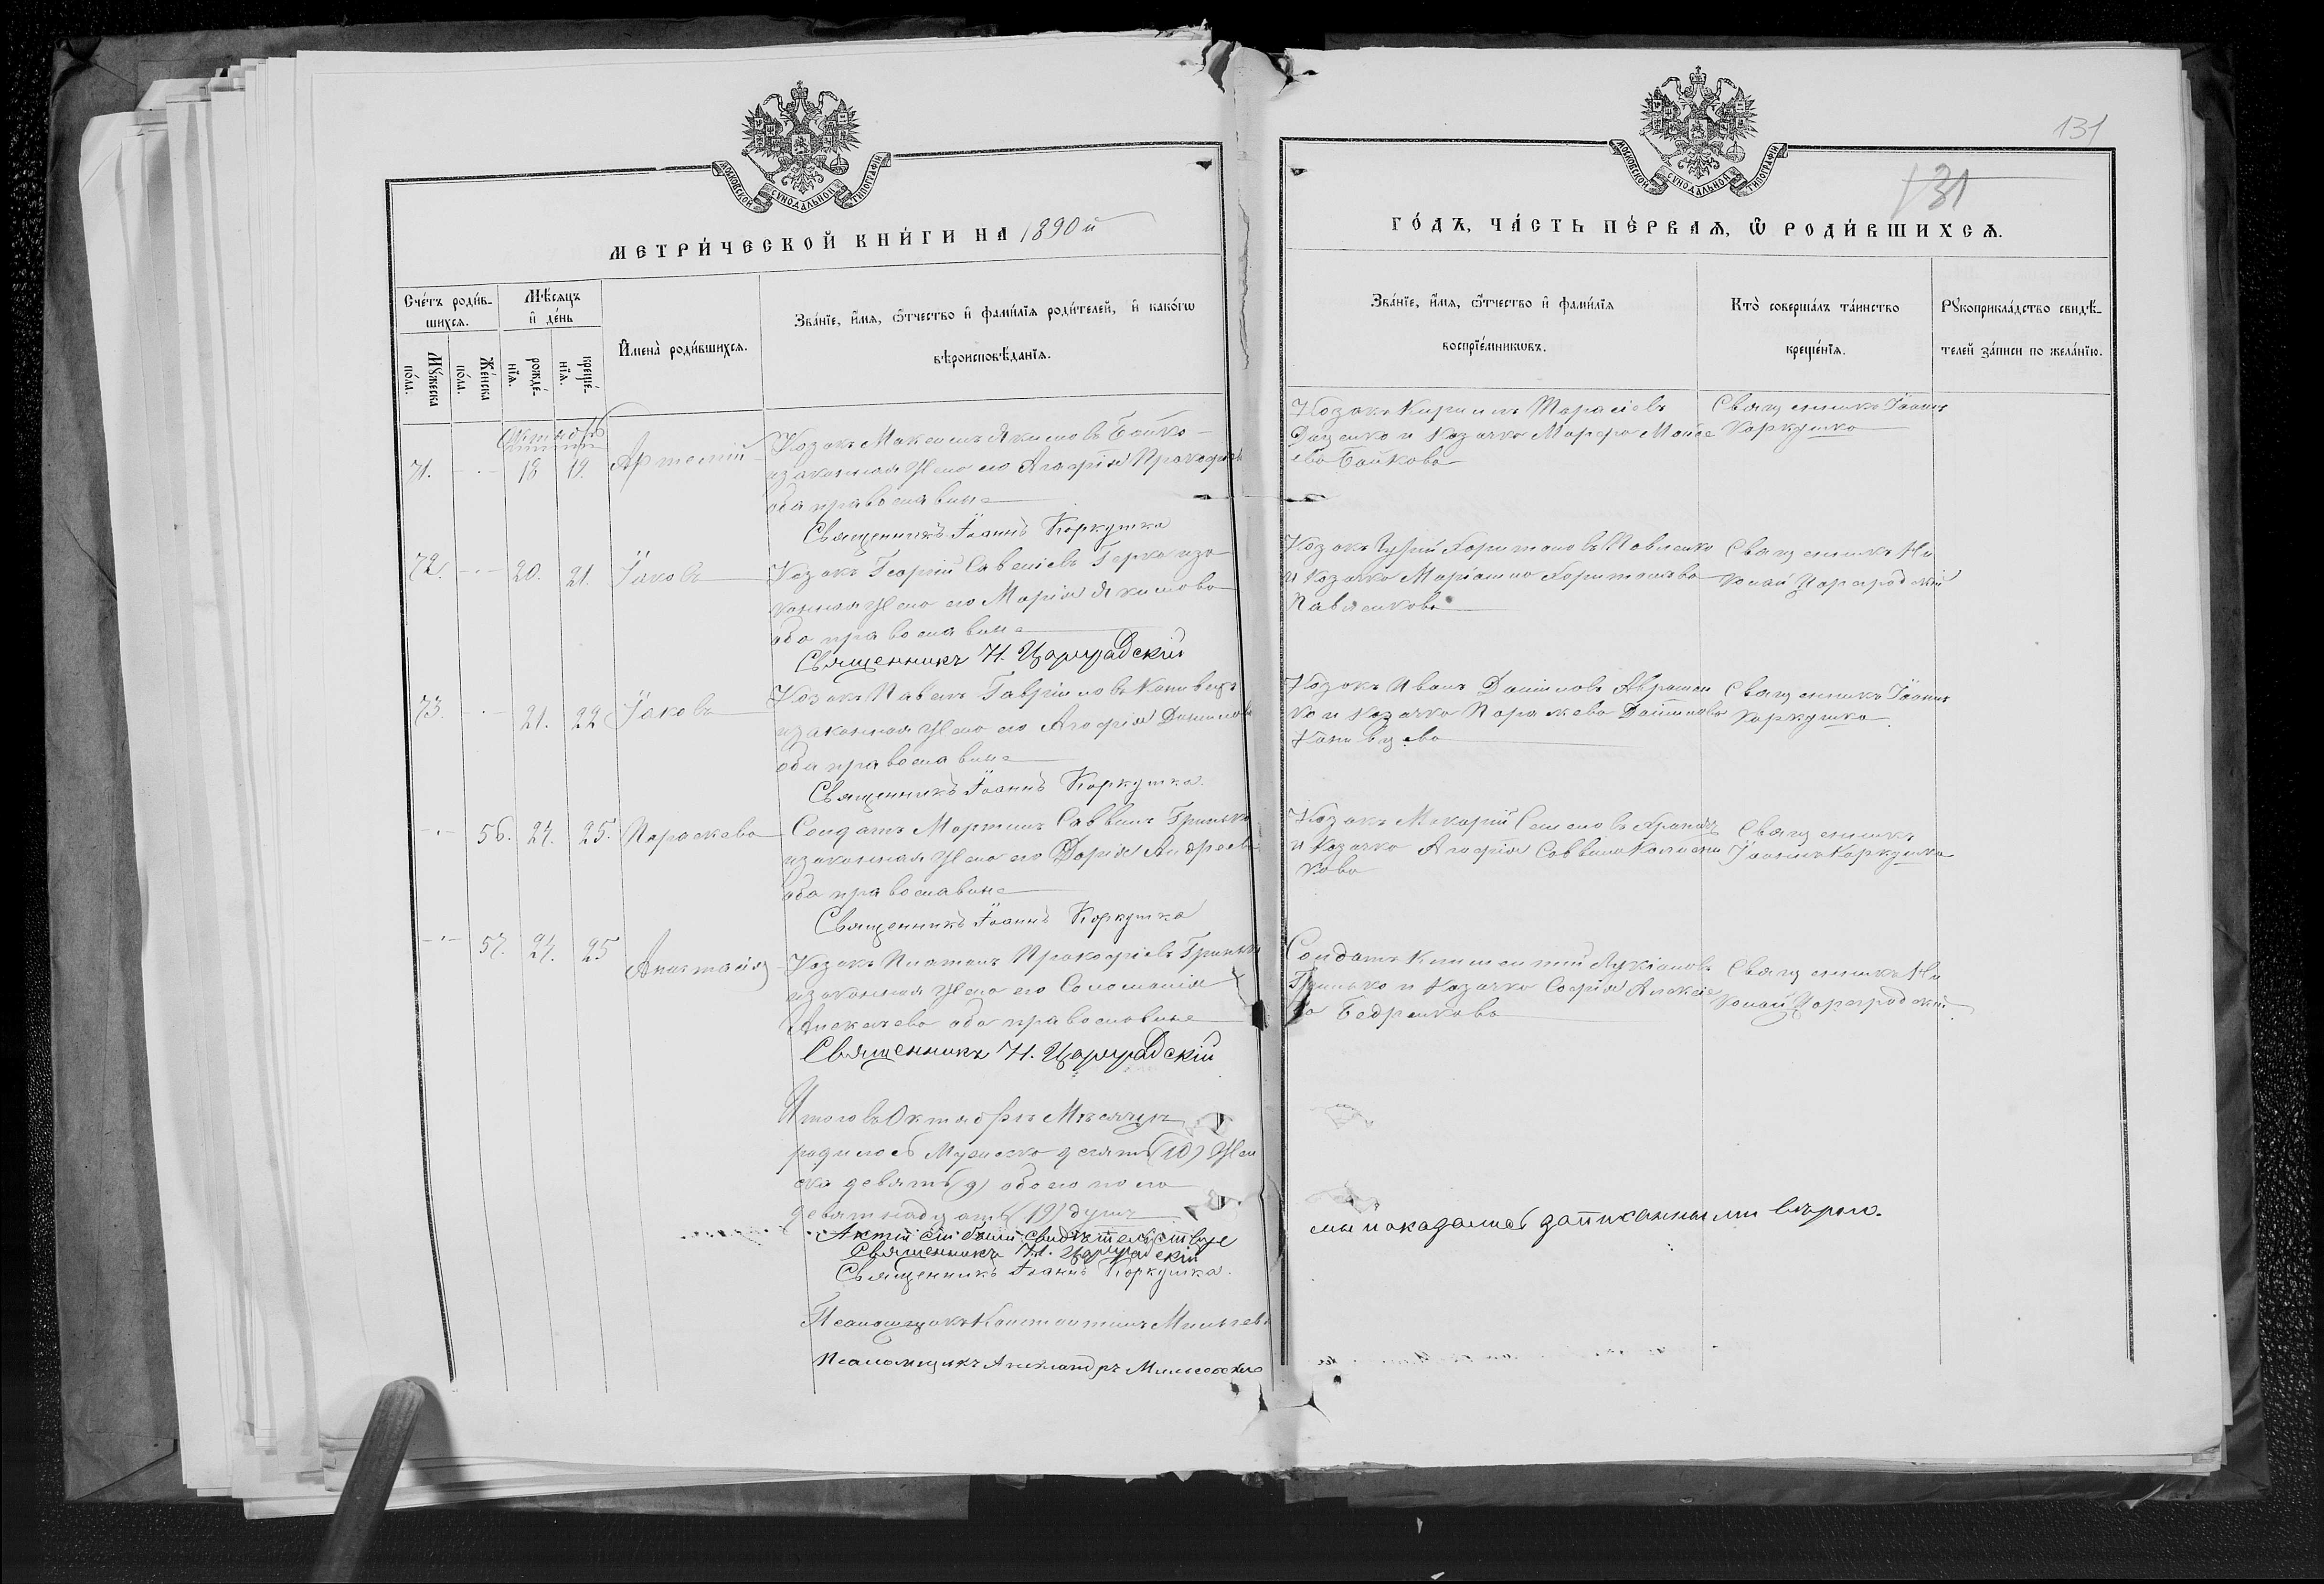 МОСКОВСКОЙ СѴНОДАЛЬНОЙ ТИПОГРАФІИ
МЕТРИ́ЧЕСКОЙ КНИ́ГИ НА 1890 й
Сче́тъ роди́в-
шихсѧ.
Мꙋ́жеска
по́ла.
Же́нска
по́ла.
Мѣ́сѧцъ
и҆ де́нь
рожде́-
нїѧ.
креще́-
нїѧ.
И҆мена̀ роди́вшихсѧ.
Зва́нїе, и҆́мѧ, ѻ҆́тчество и҆ фами́лїѧ роди́телей, и҆ како́гѡ
вѣроисповѣ́данїѧ.
Октябрь
71. 18 19. Артемій
Козакъ Максимъ Якимовъ Бойко
и законная жена его Агафія Прокофьев
оба православные
Священникъ Іоаннъ Коркушка
72. 20. 21. Іаковъ
Козакъ Георгій Савеліевъ Горка и за
конная жена его Марія Якимова
оба православные
Священникъ Н. Цареградскій
73. 21. 22 Іаковъ
Козакъ Павелъ Гавріиловъ Канивецъ
и законная жена его Агафія Даниилова
оба православные
Священникъ Іоаннъ Коркушка.
56. 24. 25. Параскева
Солдатъ Мартинъ Саввинъ Гринько
и законная жена его Дарія Андреева
оба православные
Священникъ Іоаннъ Коркушка
57. 24. 25 Анастасія
Козакъ Платонъ Прокофіевъ Гринько
и законная жена его Соломанія
Алексѣева оба православные
Священникъ Н. Цареградскій
Итого въ Октябрѣ Мѣсяцѣ
родилось Мужеска десять (10) Жен
ска девять (9) обоего пола
девятнадцать (19) душъ
Священникъ Н. Цареградскій
Священникъ Іоаннъ Коркушка.
Псаломщикъ Константинъ
Псаломщикъ Александръ
131
131
МОСКОВСКОЙ СѴНОДАЛЬНОЙ ТИПОГРАФІИ
ГО́ДЪ, ЧА́СТЬ ПЕ́РВАѦ, Ѽ РОДИ́ВШИХСѦ.
Зва́нїе, и҆́мѧ, ѻ҆́тчество и҆ фами́лїѧ
воспрїе́мникѡвъ.
Кто̀ соверша́лъ та́инство
креще́нїѧ.
Рꙋкоприкла́дство свидѣ́-
телей за́писи по жела́нїю.
Козакъ Кирилъ Тарасіевъ
Даценко и козачка Марфа Моисе
ева Бойкова
Священникъ Іоаннъ
Коркушка
Козакъ Гурій Харитоновъ Павленко
и козачка Маріамна Харитонова
Павленкова
Священникъ Ни
колай Цареградскій
Козакъ Иванъ Данііловъ Авраmен
ко и козачка Параскева Данііловa
Канивцева
Священникъ Іоаннъ
Коркушка.
Козакъ Макарій Семеновъ
и козачка Агафія Саввина
кова
Священникъ
Іоаннъ Коркушка
Солдатъ Климентій Лукіановъ
Гринько и козачка Софія Алексіе
ва Бедренкова
Священникъ Ни
колай Цареградскій.